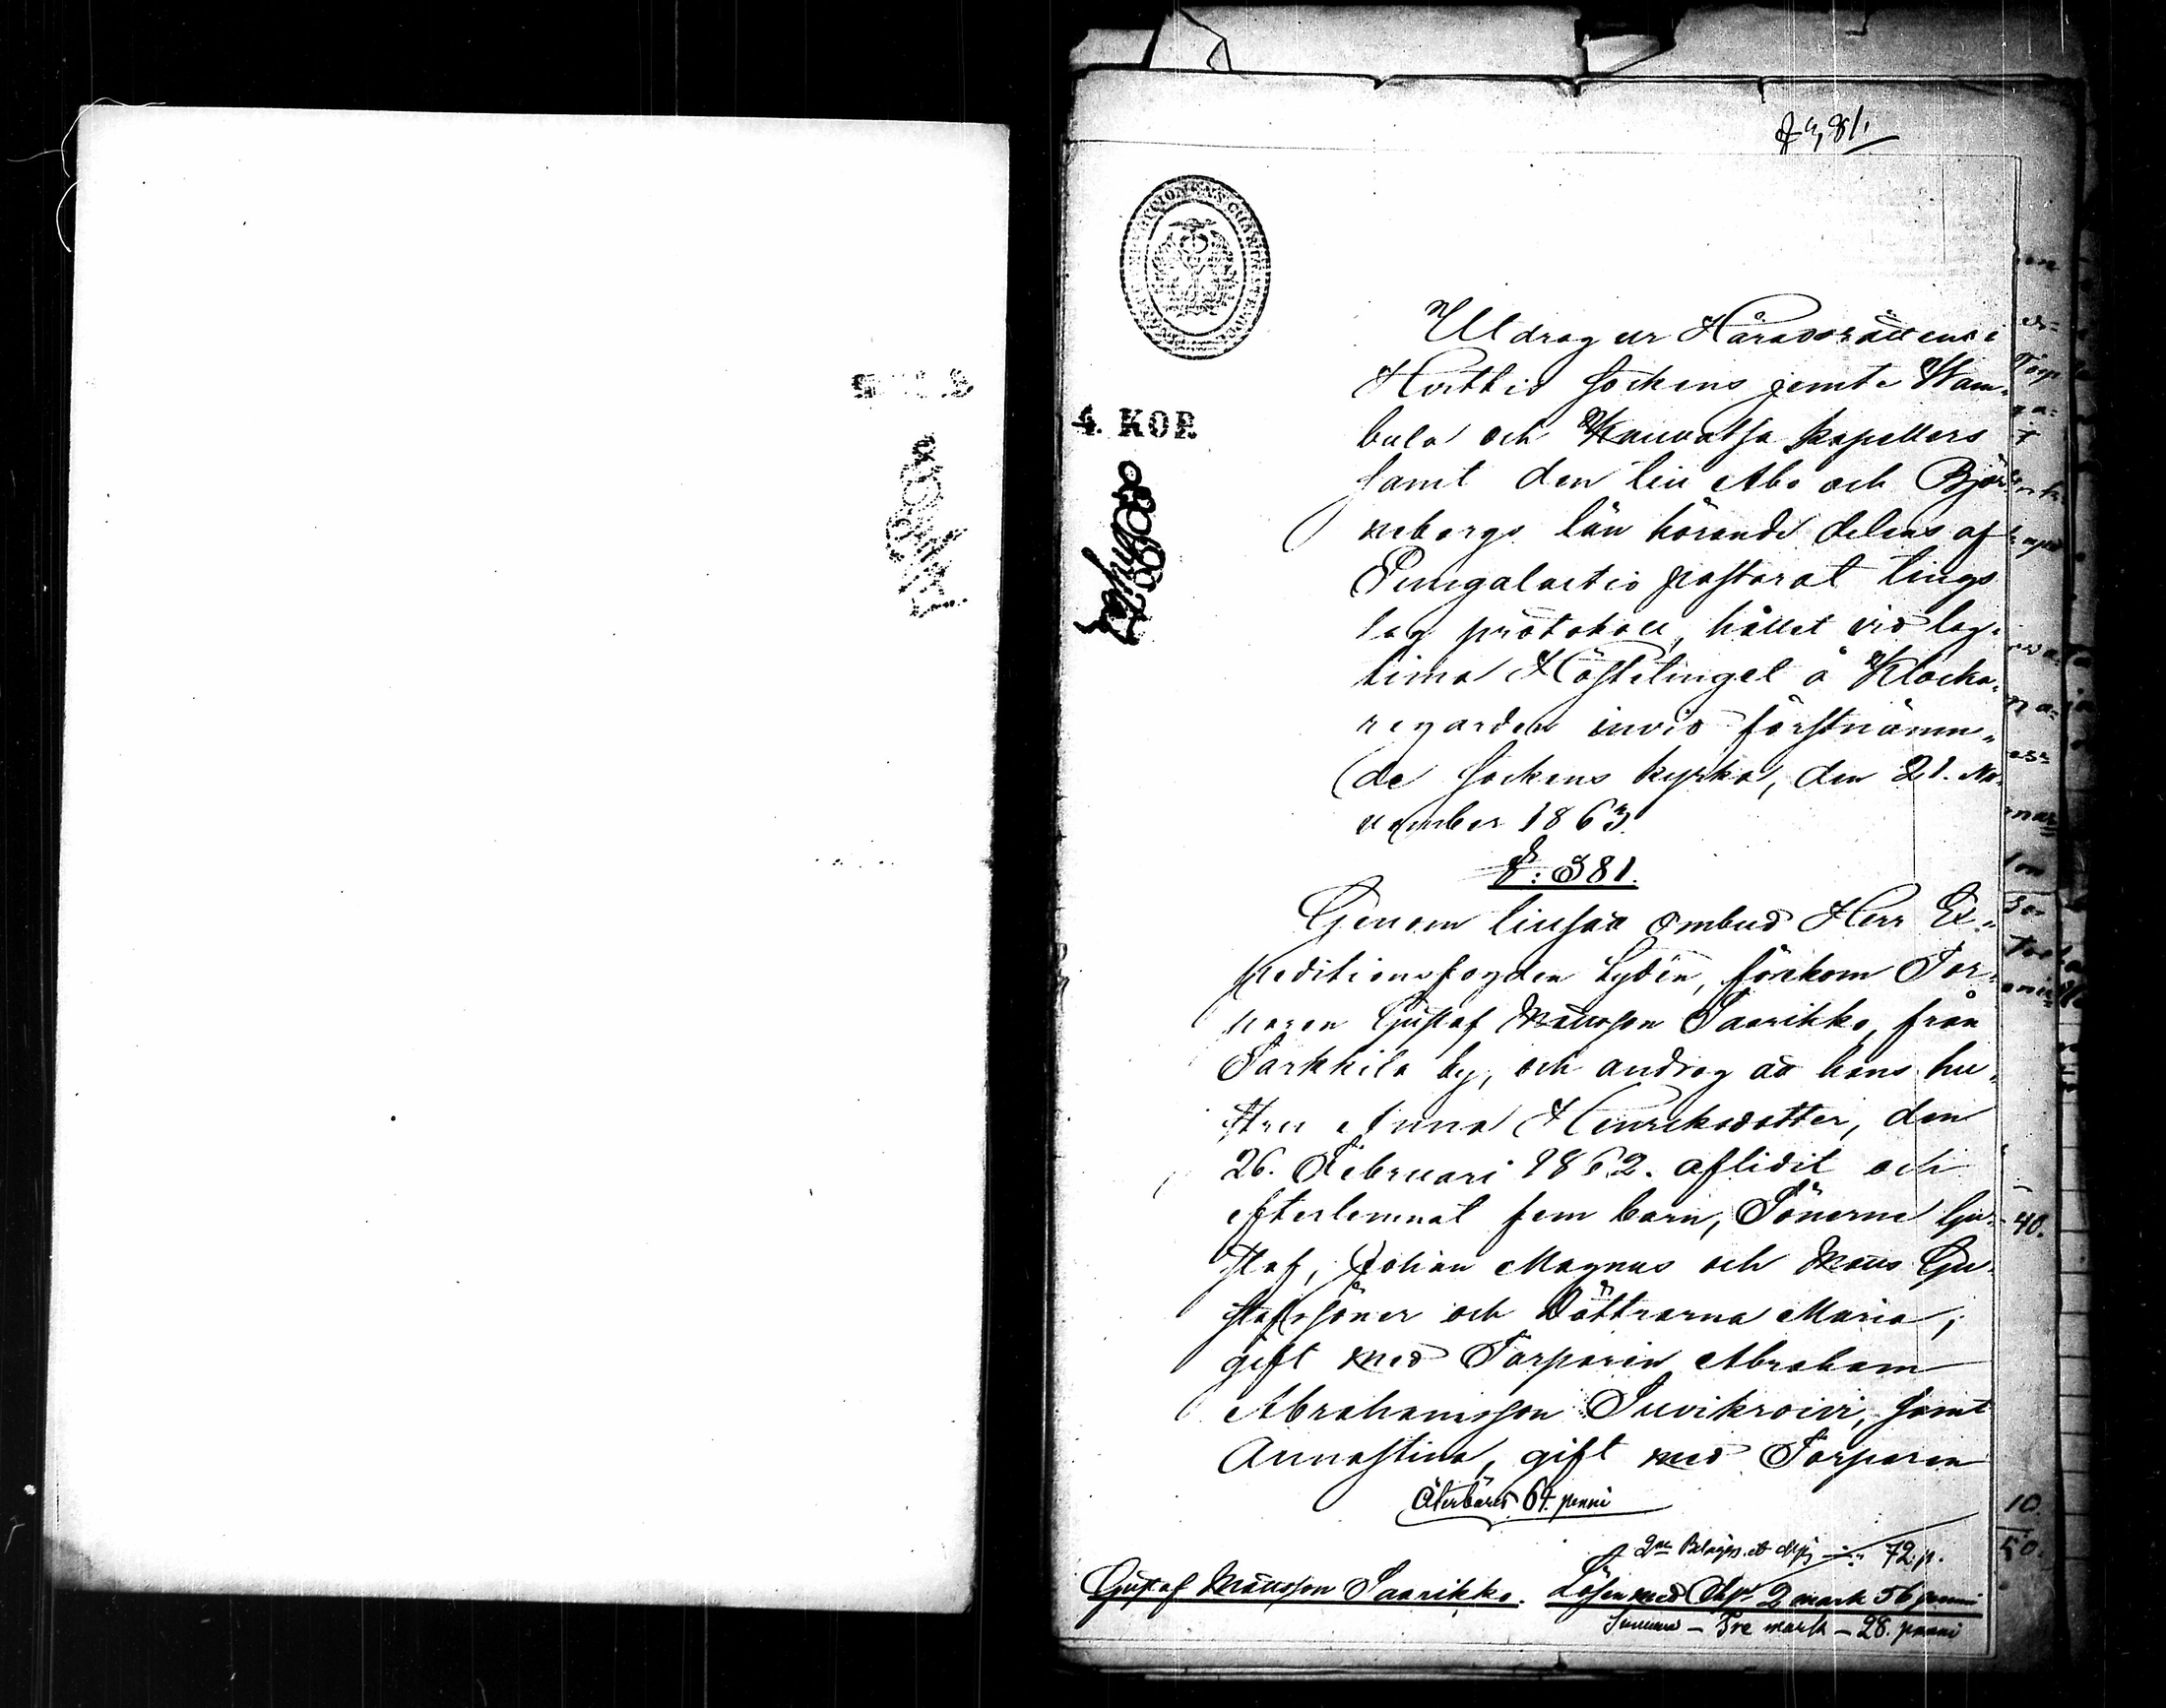 § 381.
4. KOP.
Utdrag ur Häradsrättens i
Hvittis Sockens jemte Wam-
bula och Kauvatsa kapellers
samt den till Åbo och Björ-
neborgs län hörande delens af
Pungalaitio pastorat tings
lag protokoll, hållet vid lag-
tima Höstetinget å Klocka-
regården invid förstnämn-
de Sockens kyrka, den 21. No-
vember 1863.
§: 381.
Genom tillsatt ombud Herr Ex-
peditionsfogden Lydén, förekom Tor-
paren Gustaf Mattsson Saarikko, från
Sarkkila by, och androg att hans hu-
stru Anna Henriksdotter, den
26. Februari 1862. aflidit och
efterlemnat fem barn, Sönerne Gu-
staf, Johan Magnus och Matts Gu-
stafssöner och Döttrarna Maria,
gift med Torparen Abraham
Abrahamsson Suvikroivi, samt
Annastina, gift med Torparen
Återbäres 64. penni
72. p.
Gustaf Mattsson Saarikko. Lösen med Chp 2 mark 56 penni
Summa – Tre mark – 28. penni
40.
10.
50.